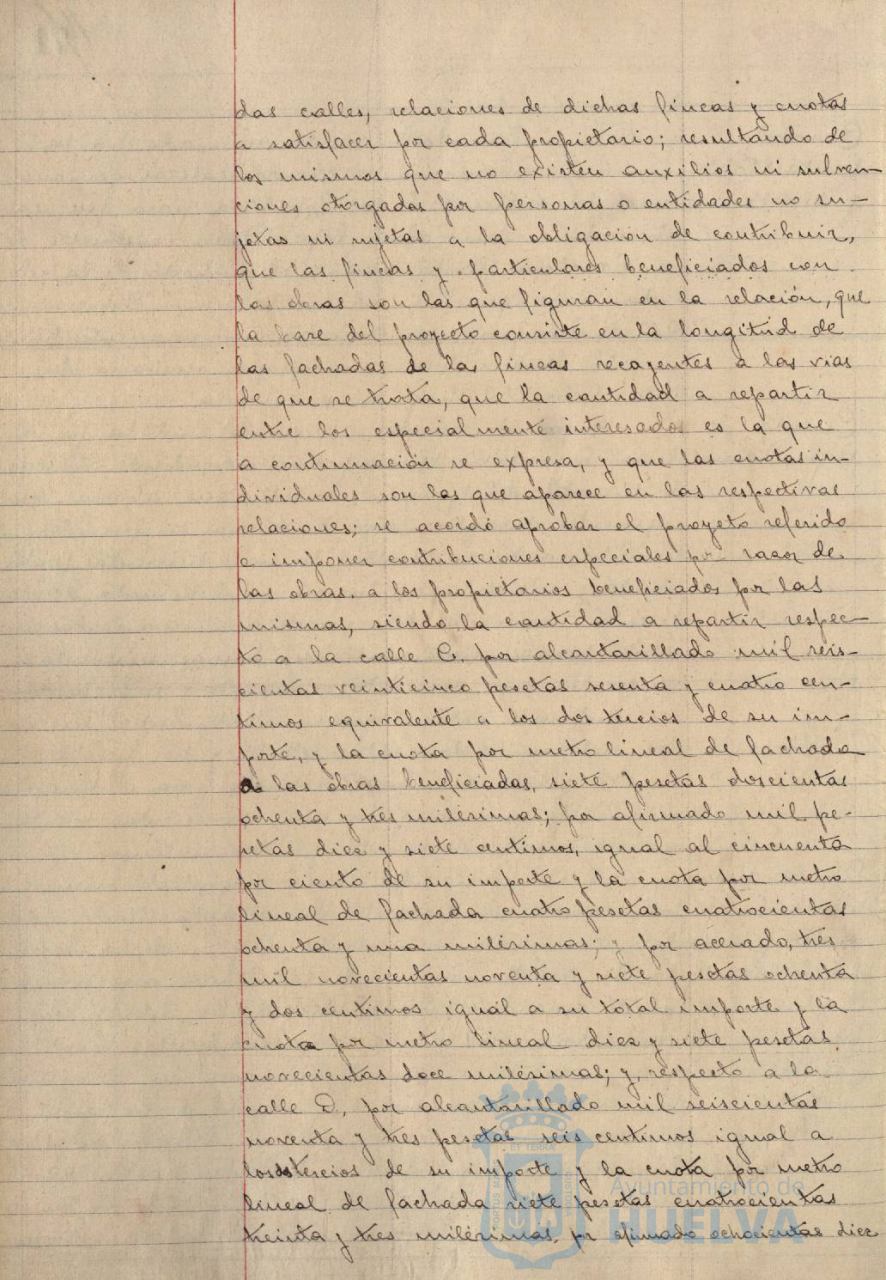 das calles, relaciones de dichas fincas y cuotas
a satisfacer por cada propietario; resultando de
los mismos que no existen auxilios ni subven-
ciones otorgados por personas o entidades no su-
jetas ni sujetas a la obligación de contribuir,
que las fincas y particulares beneficiados con
las obras son las que figuran en la relación, que
la base del proyecto consiste en la longitud de
las fachadas de las fincas recayentes a las vias
de que se trata, que la cantidad a repartir
entre los especialmente interesados es la que
a continuación se expresa, y que las cuotas in-
dividuales son las que aparece en las respectivas
relaciones; se acordó aprobar el proyeto referido
e imponer contribuciones especiales por razon de
las obras. a los propietarios beneficiados por las
mismas, siendo la cantidad a repartir respec-
to a la calle C. por alcantarillado mil seis-
cientas veinticinco pesetas sesenta y cuatro cen-
timos equivalente a los dos tercios de su im-
porte, y la cuota por metro lineal de fachada
a las obras beneficiadas, siete pesetas doscientas
ochenta y tres milésimas; por afirmado mil pe-
setas diez y siete centimos, igual al cincuenta
por ciento de su importe y la cuota por metro
lineal de fachada cuatro pesetas cuatrocientas
ochenta y una milésimas; y por acerado, tres
mil novecientas noventa y siete pesetas ochenta
y dos centimos igual a su total importe y la
cuota por metro lineal diez y siete pesetas
novecientas doce milésimas; y, respecto a la
calle D, por alcantarillado mil seiscientas
noventa y tres pesetas seis centimos igual a
los dos tercios de su importe y la cuota por metro
lineal de fachada siete pesetas cuatrocientas
treinta y tres milésimas, por afirmado ochocientas diez
Ayuntamiento de
HUELVA